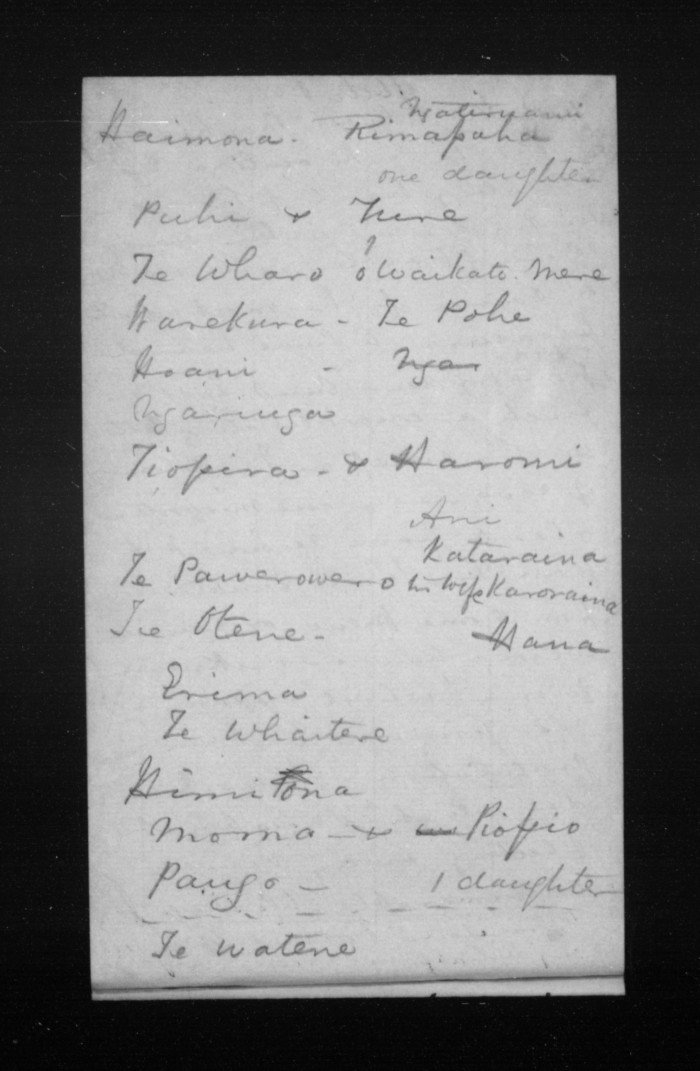 Haimona. Rimapaha
one daughter
Puhi & Ture
Te Wharo o Waikato. Mere
Warekura - Te Pohe
Hoani - Nga
Ngaringa
Tiopira - & Haromi
Ani
Kataraina
Te Pawerowero his wife Karoraina
Te Otene - Hana
Erima
Te Whaitere
Himitona
Moma - & Piopio
Pango - 1 daughter
Te Watene